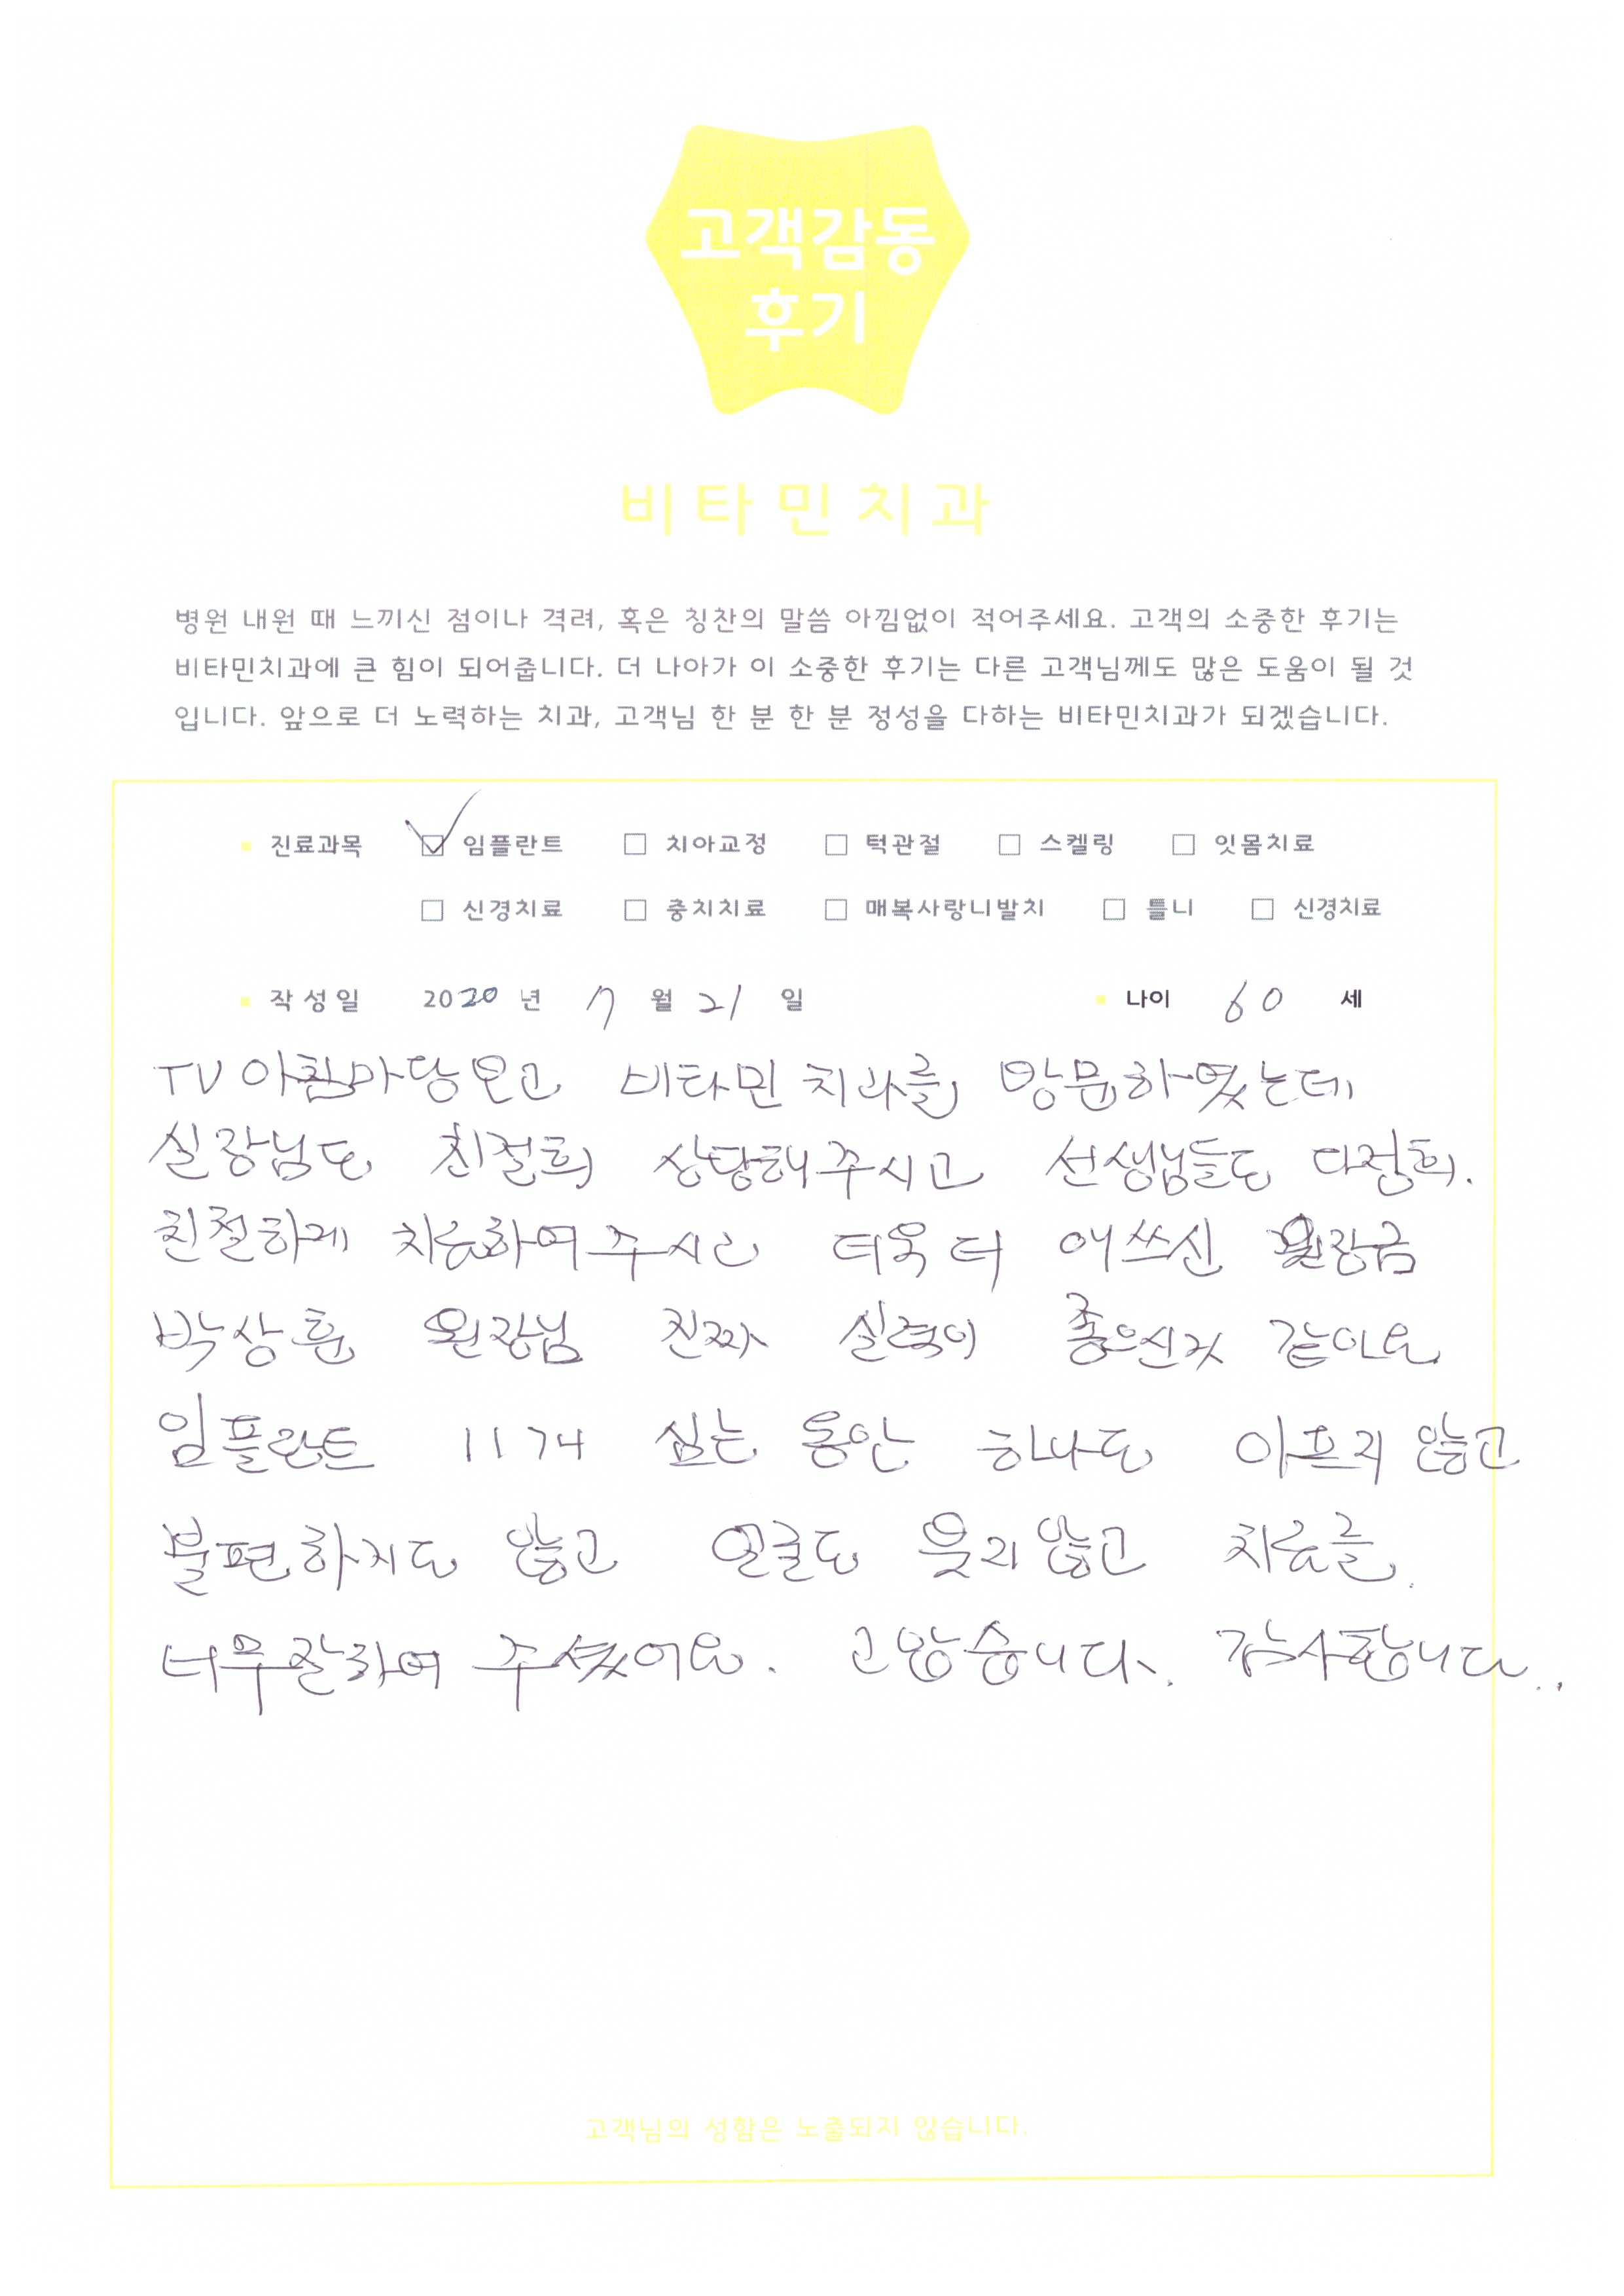 고객감동
후기
비타민치과
병원 내원 때 느끼신 점이나 격려, 혹은 칭찬의 말씀 아낌없이 적어주세요. 고객의 소중한 후기는
비타민치과에 큰 힘이 되어줍니다. 더 나아가 이 소중한 후기는 다른 고객님께도 많은 도움이 될 것
입니다. 앞으로 더 노력하는 치과, 고객님 한 분 한 분 정성을 다하는 비타민치과가 되겠습니다.
진료과목 ☑ 임플란트 □ 치아교정 □ 턱관절 □ 스켈링 □ 잇몸치료
□ 신경치료 □ 충치치료 □ 매복사랑니발치 □ 틀니 □ 신경치료
작성일 2020 년 7 월 21 일 나이 60 세
TV 아침마당 비타민 치과를 방문하였는데
실장님도 친절히 상담해주시고 선생님들도 다정히.
친절하게 치료하여주시고 더욱 더 애쓰신
박상훈 원장님 진짜 실력이 좋으신거 같아요
임플란트 11개 심는 동안 하나도 아프지 않고
불편하지도 않고 얼굴도 붓지 않고 치료를.
너무잘하여 주셨어요. 고맙습니다. 감사합니다..
고객님의 성함은 노출되지 않습니다.